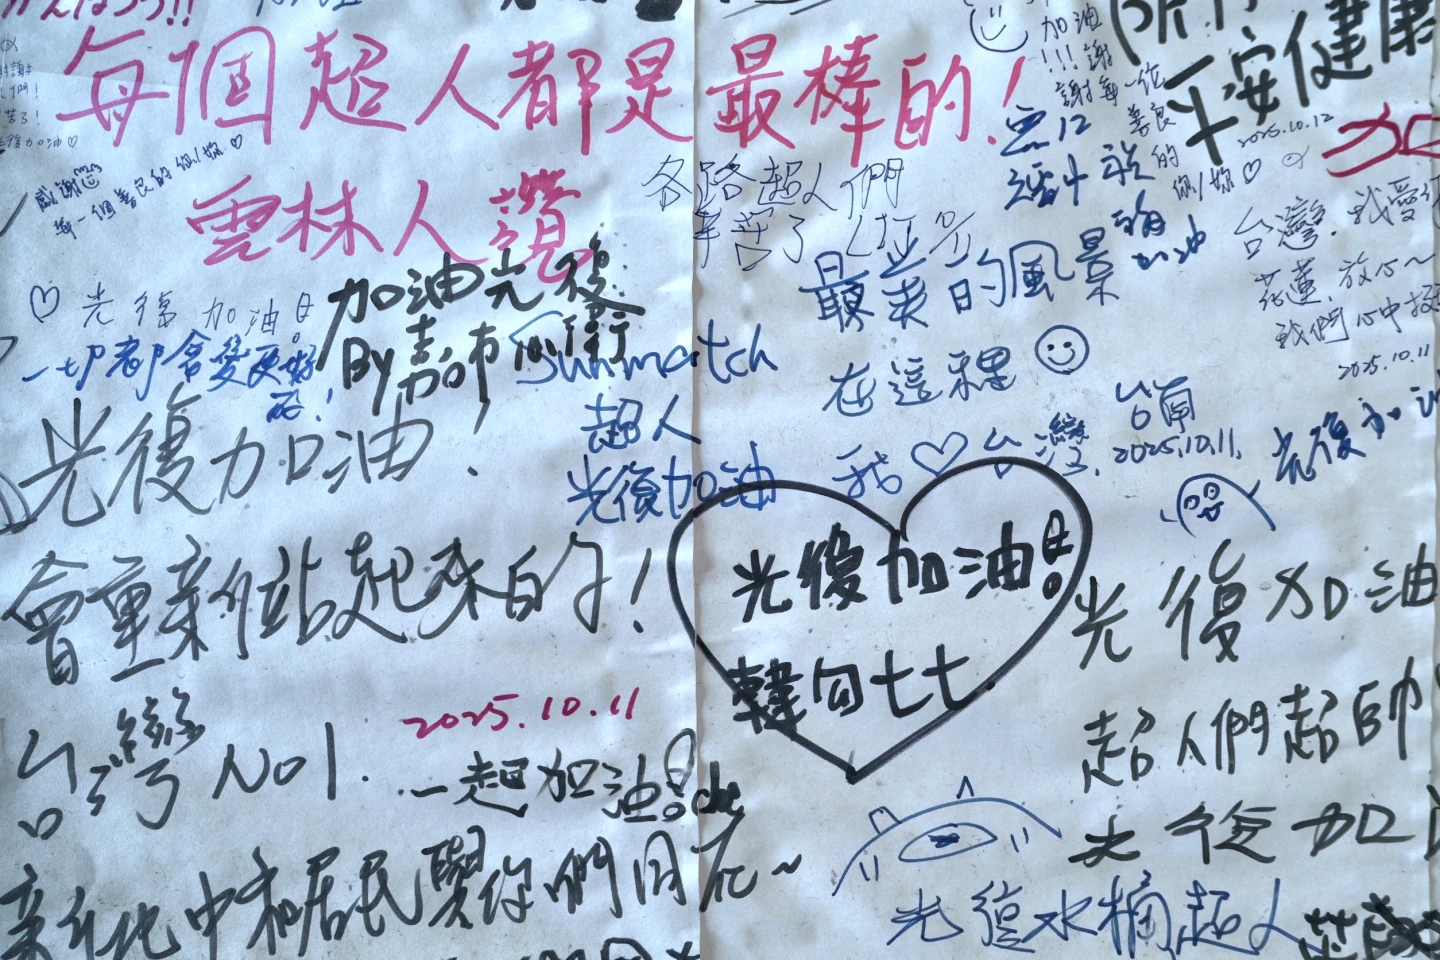 每個超人都是最棒的!
雲林人讚
感謝
每一個善良的你/妳♡
加油
!!!謝
謝每一位
善良
的
你/妳♡
平安健康
2025.10.12
各路超人們
辛苦了
最美的風景
在這裡
我♡台灣.
台南
2025.10.11.
台灣.我愛
花蓮.放心~
我們心中
2025.10.11
♡光復加油!
一切都會變更好
的!
加油光復
By嘉市
Sunmatch
超人
光復加油
光復加油!
會重新站起來的!
台灣No1.
2025.10.11
一起加油!
新北中和居民與你們同在~
光復加油!
韓勾七七
光復加油
光復加油
超人們超帥
光復加油
光復水桶超人